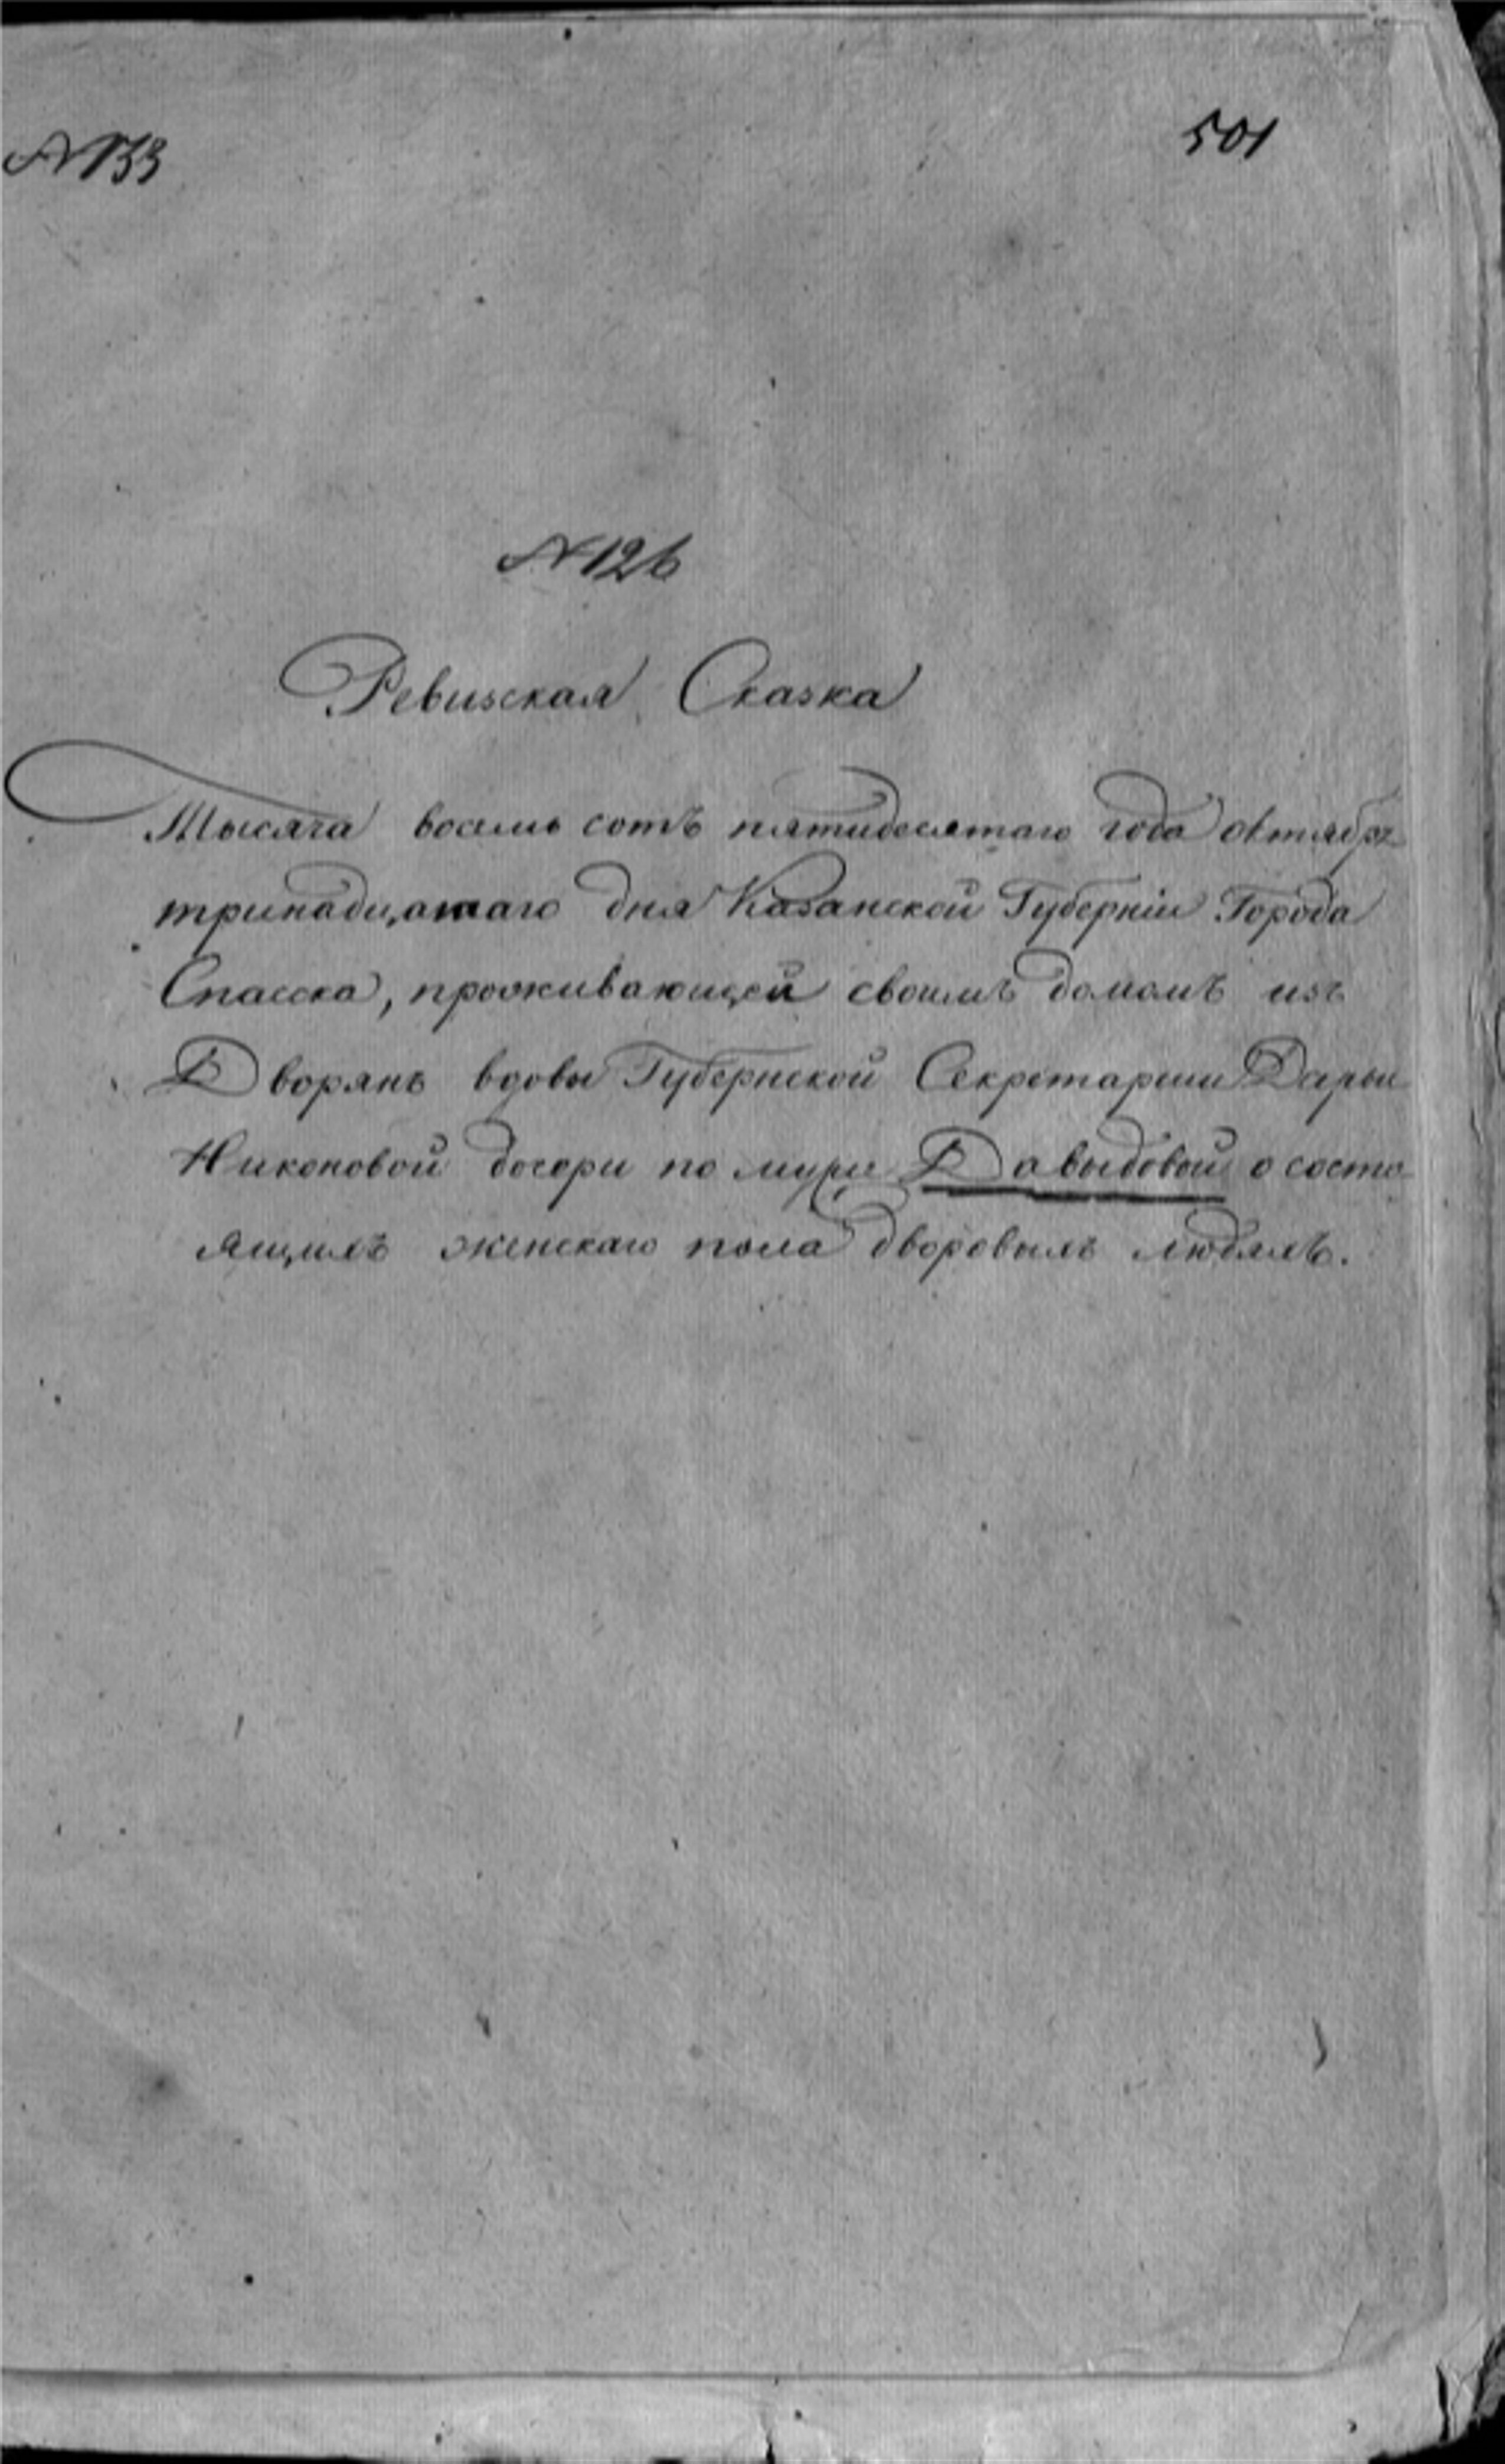 № 133
501
№ 126
Ревизская Сказка
Тысяча восемь сотъ пятидесятаго года октября
тринадцатаго дня Казанской Губерніи Города
Спасска, прооживающей своимъ домомъ изъ
Дворянъ вдовы Губернской Секретарши Дарьи
Никоновой дочери по мужу Давыдовой о состо
ящихъ женскаго пола дворовыхъ людяхъ.